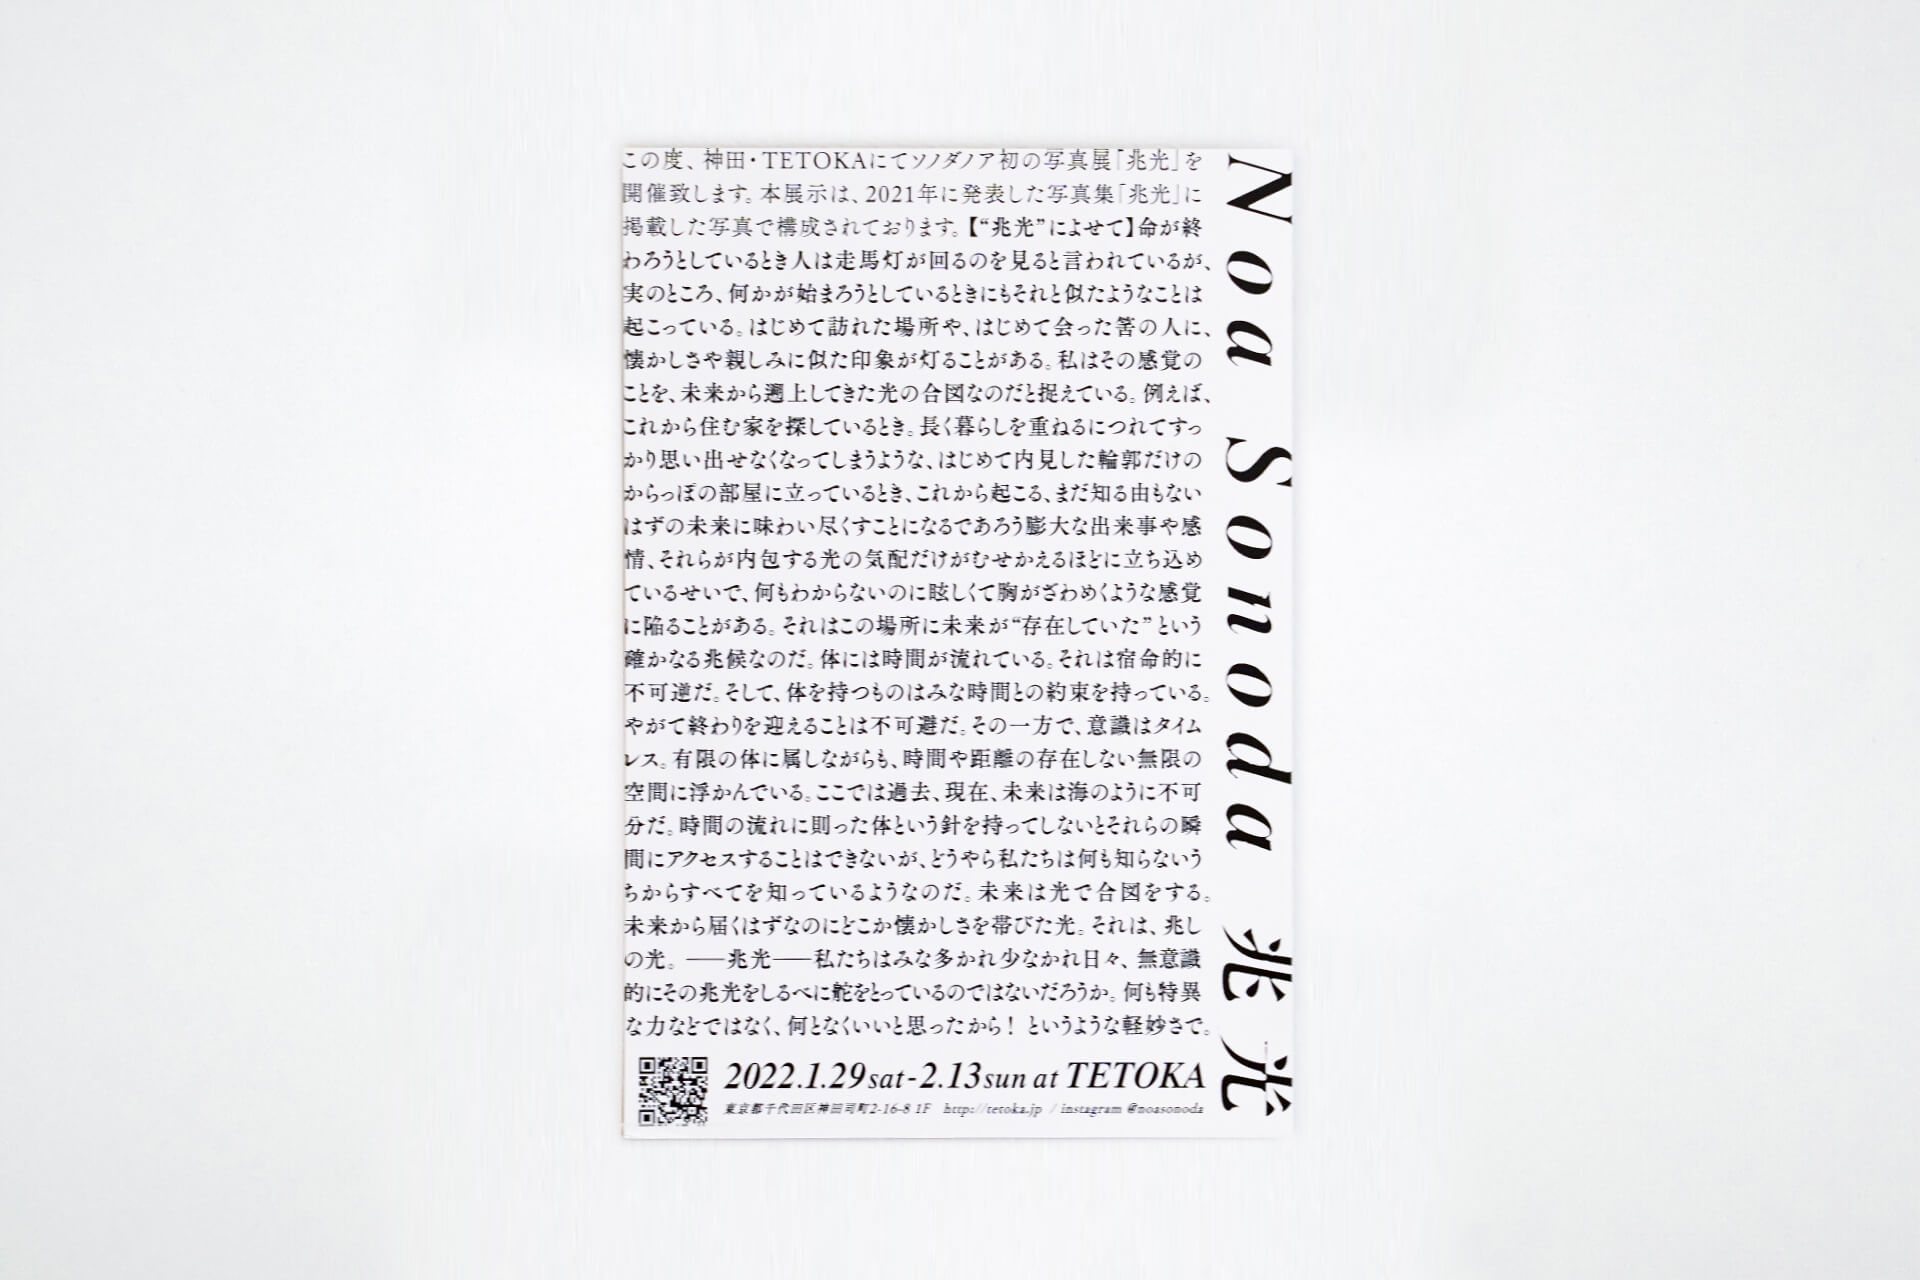 この度、神田・TETOKAにてソノダノア初の写真展「兆光」を
開催致します。本展示は、2021年に発表した写真集「兆光」に
掲載した写真で構成されております。【“兆光”によせて】命が終
わろうとしているとき人は走馬灯が回るのを見ると言われているが、
実のところ、何かが始まろうとしているときにもそれと似たようなことは
起こっている。はじめて訪れた場所や、はじめて会った筈の人に、
懐かしさや親しみに似た印象が灯ることがある。私はその感覚の
ことを、未来から遡上してきた光の合図なのだと捉えている。例えば、
これから住む家を探しているとき。長く暮らしを重ねるにつれてすっ
かり思い出せなくなってしまうような、はじめて内見した輪郭だけの
からっぽの部屋に立っているとき、これから起こる、まだ知る由もない
はずの未来に味わい尽くすことになるであろう膨大な出来事や感
情、それらが内包する光の気配だけがむせかえるほどに立ち込め
ているせいで、何もわからないのに眩しくて胸がざわめくような感覚
に陥ることがある。それはこの場所に未来が“存在していた”という
確かなる兆候なのだ。体には時間が流れている。それは宿命的に
不可逆だ。そして、体を持つものはみな時間との約束を持っている。
やがて終わりを迎えることは不可避だ。その一方で、意識はタイム
レス。有限の体に属しながらも、時間や距離の存在しない無限の
空間に浮かんでいる。ここでは過去、現在、未来は海のように不可
分だ。時間の流れに則った体という針を持ってしないとそれらの瞬
間にアクセスすることはできないが、どうやら私たちは何も知らないう
ちからすべてを知っているようなのだ。未来は光で合図をする。
未来から届くはずなのにどこか懐かしさを帯びた光。それは、兆し
の光。——兆光——私たちはみな多かれ少なかれ日々、無意識
的にその兆光をしるべに舵をとっているのではないだろうか。何も特異
な力などではなく、何となくいいと思ったから！というような軽妙さで。
2022.1.29sat-2.13sun at TETOKA
東京都千代田区神田司町2-16-8 1F http://tetoka.jp / instagram @noasonoda
Noa Sonoda 兆光